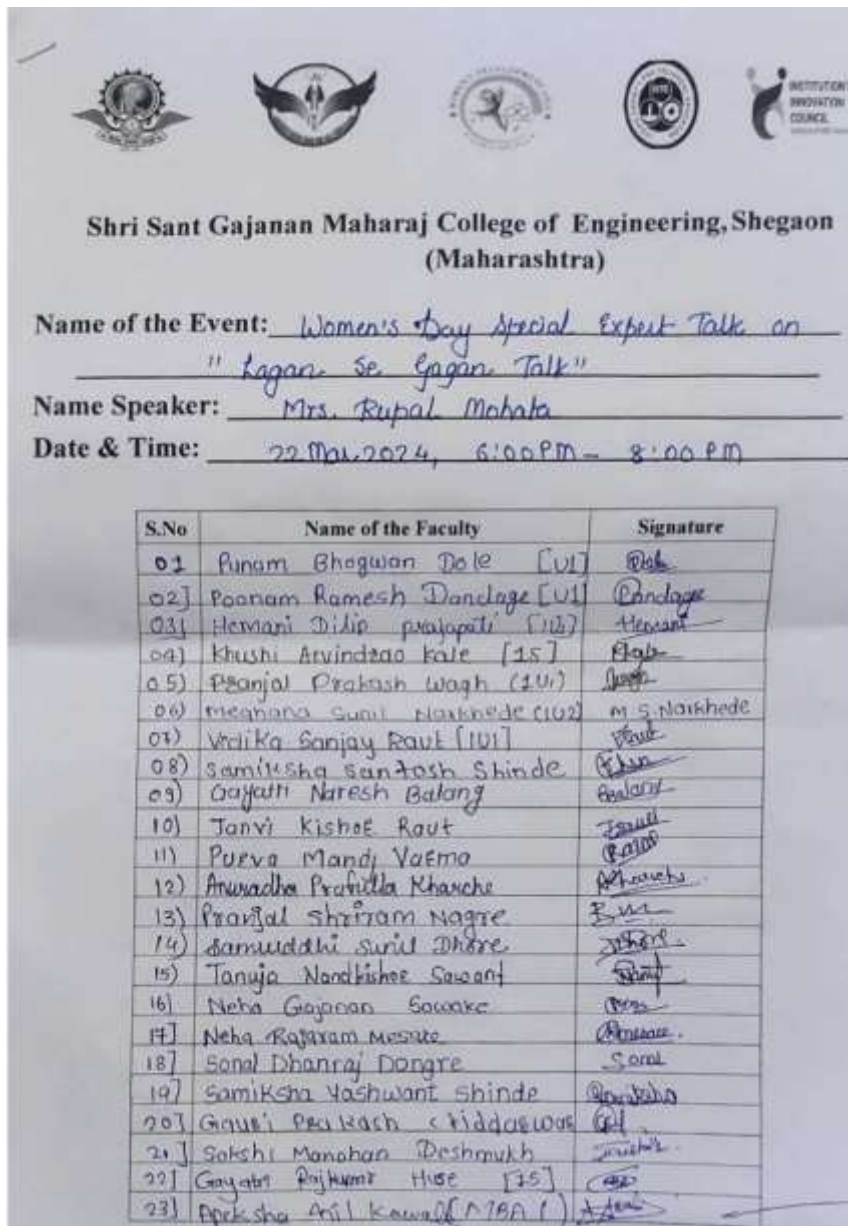 INSTITUTION'S
INNOVATION
COUNCIL
Shri Sant Gajanan Maharaj College of Engineering, Shegaon
(Maharashtra)
Name of the Event: Women's Day Special Expert Talk on
" Lagan Se Gagan Talk"
Name Speaker: Mrs. Rupal Mohata
Date & Time: 22 Mar 2024, 6:00 PM - 8:00 PM
S.No Name of the Faculty Signature
01 Punam Bhagwan Dole [U1]
02] Poonam Ramesh Dandage [U1] Dandage
03] Hemani Dilip prajapati Hemani
04) Khushi Arvindrao Kale [1S]
05) Pranjal Prakash Wagh (1U1)
06) Meghana Sunil Narkhede (1U2) M S. Narkhede
07) Vedika Sanjay Raut [1U1]
08) Samiksha Santosh Shinde
09) Gayatri Naresh Balang
10) Tanvi Kishor Raut
11) Purva Varma
12) Anuradha Prafulla Kharche
13) Pranjal Shriram Nagre
14) Samruddhi Sunil Dhore
15) Tanuja Nandkishor Sawant
16) Neha Gajanan
17] Neha Rajaram
18] Sonal Dhanraj Dongre Sonal
19] Samiksha Yashwant Shinde Samiksha
20] Gauri Prakash
21] Sakshi Manohar Deshmukh
22] Gayatri Rajkumar
23] Apeksha Anil